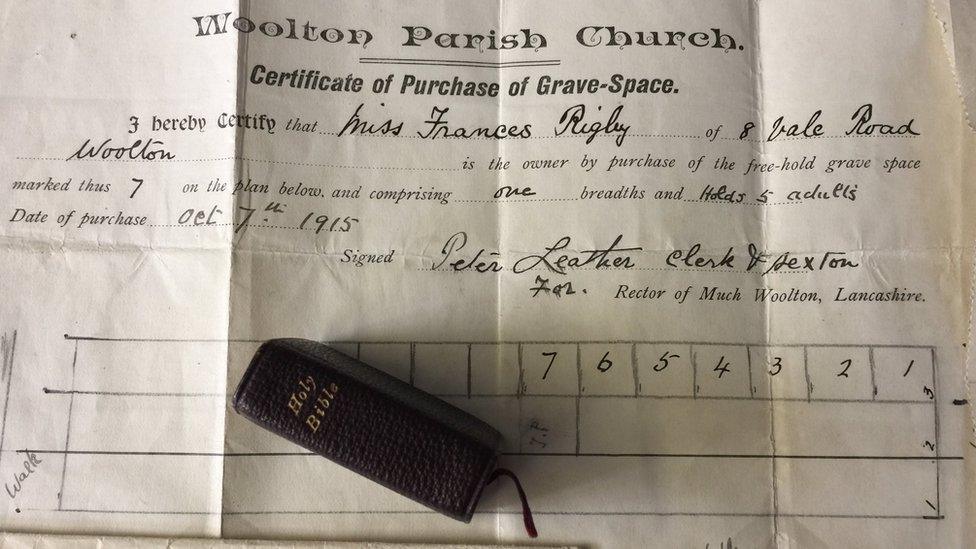 Woolton Parish Church.
Certificate of Purchase of Grave-Space.
I hereby Certify that Miss Frances Rigby of 8 Vale Road
Woolton is the owner by purchase of the free-hold grave space
marked thus 7 on the plan below, and comprising one breadths and Holds 5 adults
Date of purchase Oct 7th 1915
Signed Peter Leather Clerk & Sexton
For. Rector of Much Woolton, Lancashire.
7 6 5 4 3 2 1
3
Holy
Bible
2
Walk
1